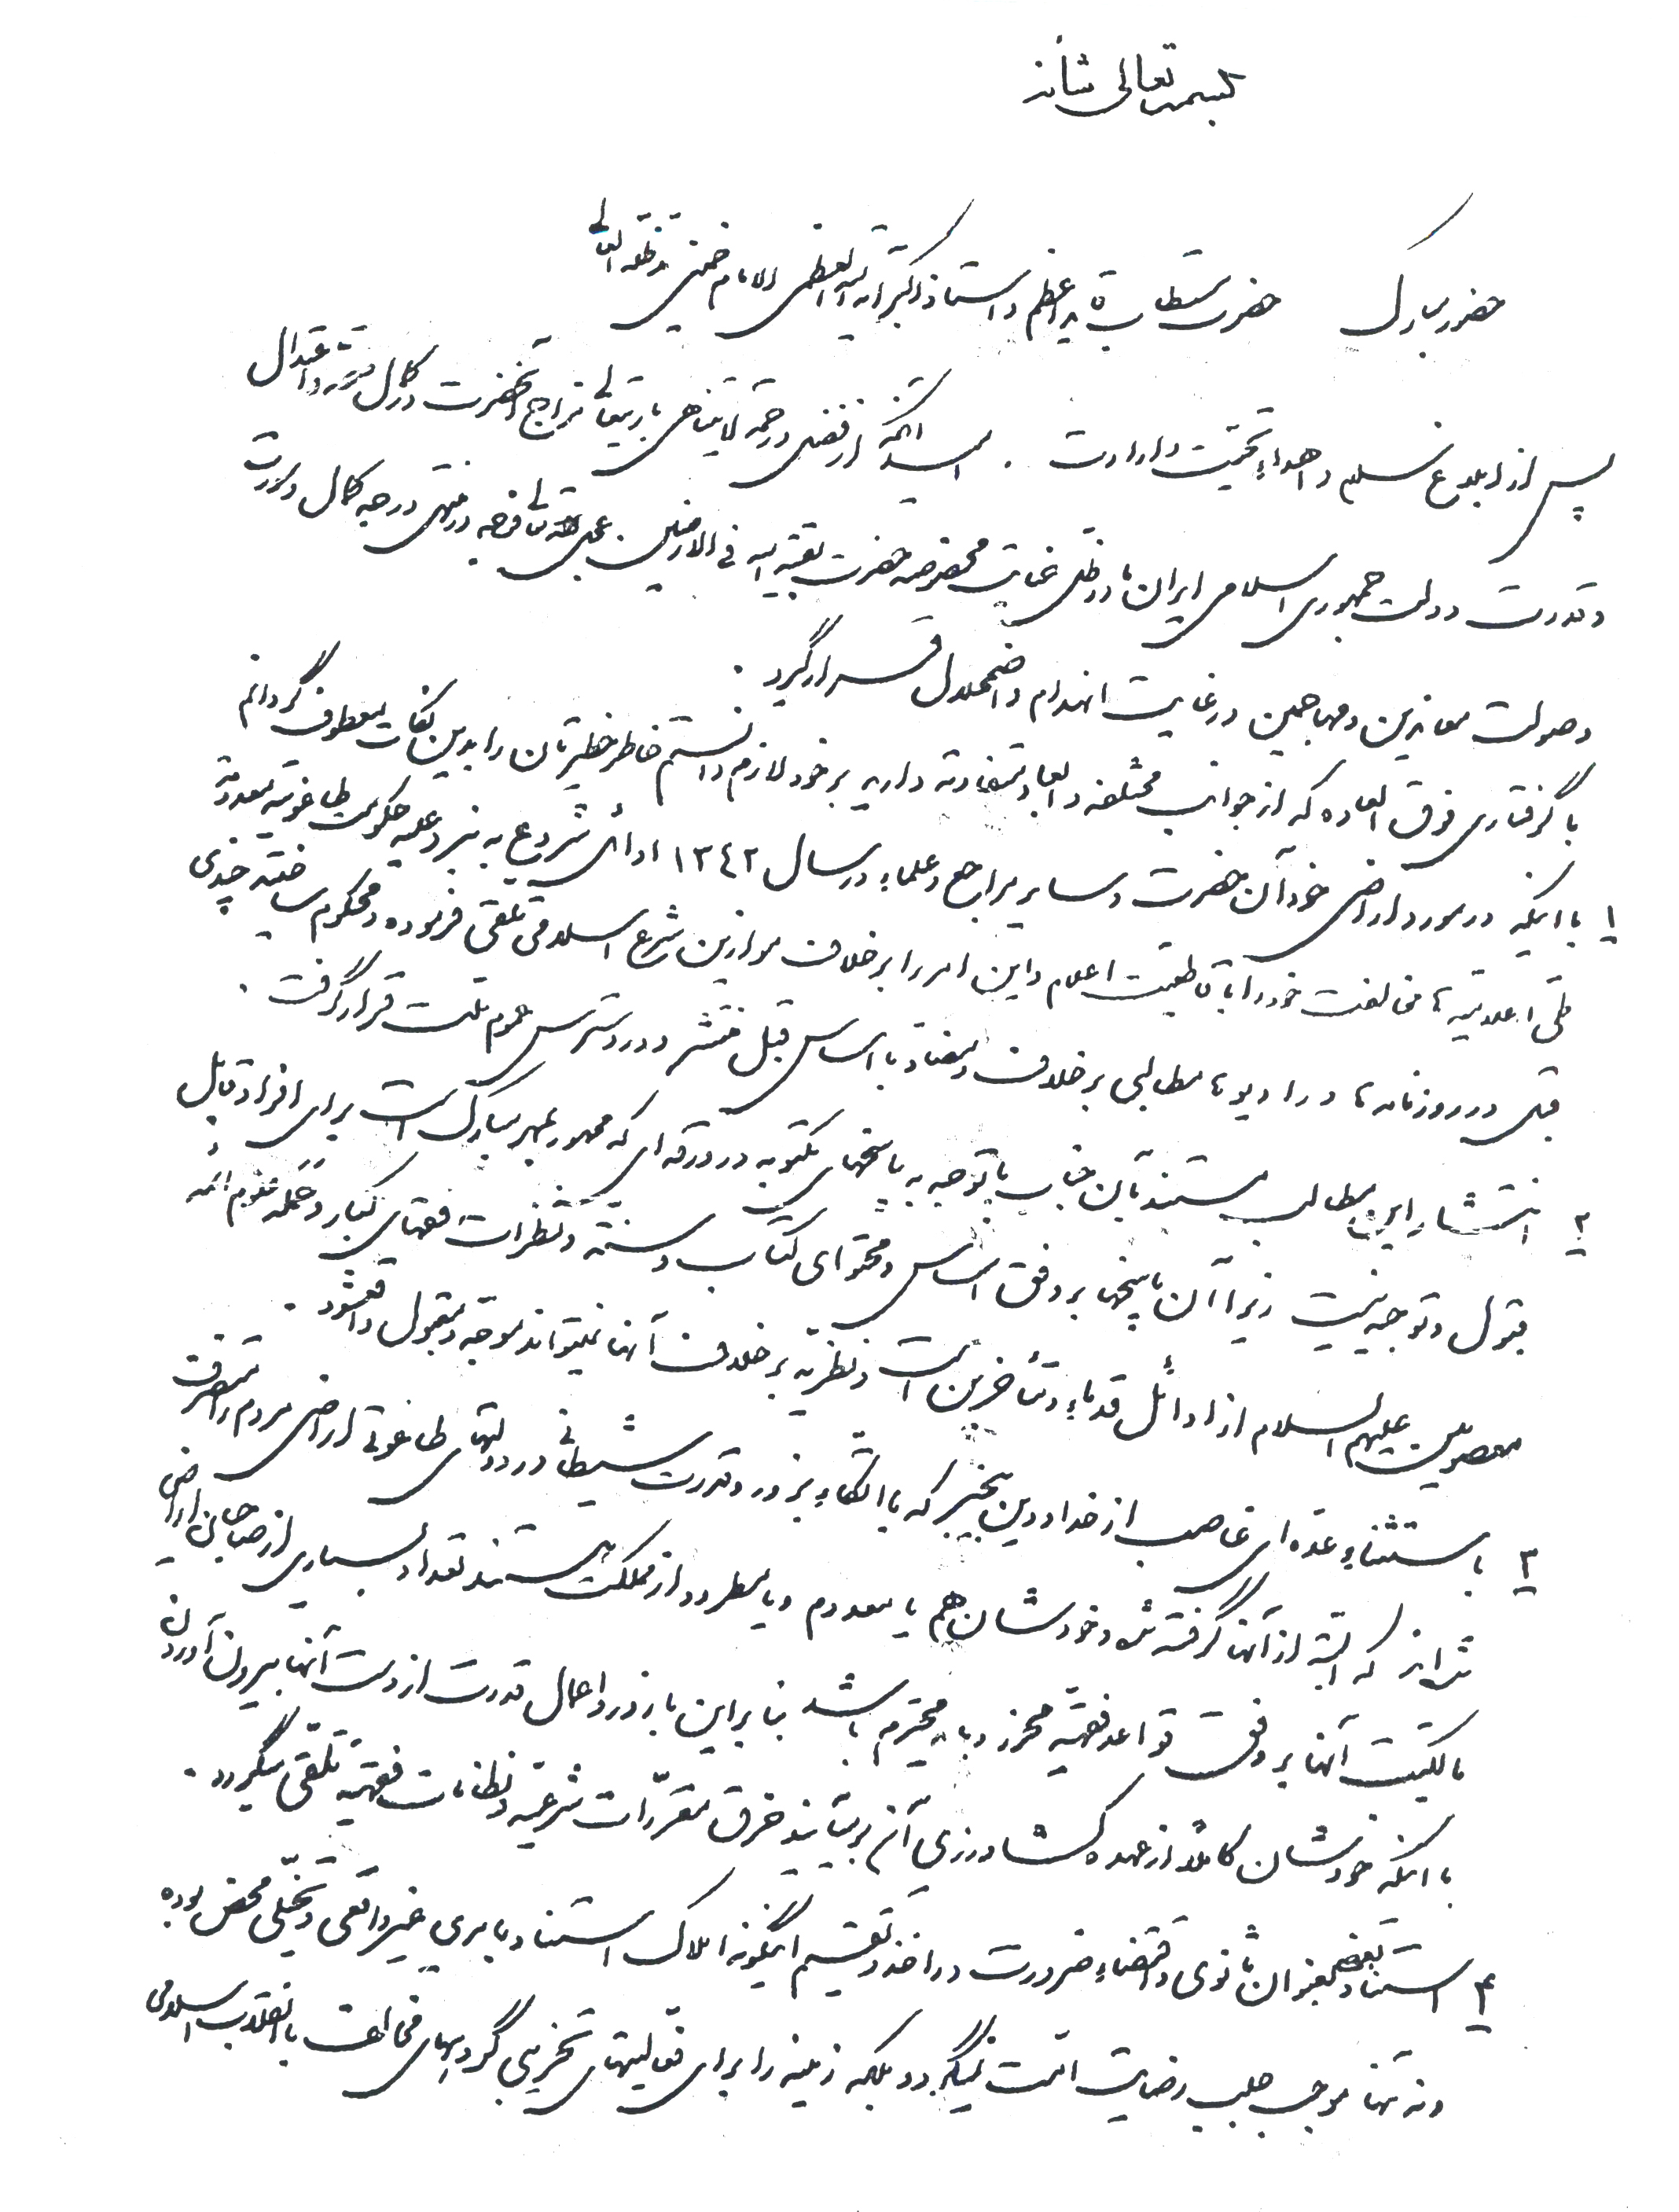 بسمه تعالی شأنه
حضور مبارک حضرت مستطاب قائد اعظم و استاذ اکبر آیة الله العظمی الامام خمینی مد ظله العالی
پس از ابلاغ سلام و اهداء تحیّت و ارادت . امید آنکه از فضل و رحمة لایتناهی باریتعالی مزاج آنحضرت در کمال صحّة و اعتدال
و قدرت دولت جمهوری اسلامی ایران ما در ظل عنایت مخصوصه حضرت بقیة الله فی الارضین عجل الله تعالی فرجه در منتهی درجه کمال و
و صولت معاندین و مهاجمین در غایت انهدام و اضمحلال قرار گیرد .
با گرفتاری فوق العاده که از جوانب مختلفه و ابعاد متفاوته دارید بر خود لازم دانستم خاطر خطیرتان را بدین نکات معطوف گردانم
۱ با اینکه در مورد اراضی خود آن حضرت و سایر مراجع و علماء در سال ۱۳۴۲ اوائل شروع به نبرد علیه حکومت طاغوتیه
طی اعلامیه ها مخالفت خود را با قاطعیت اعلام و این امر را بر خلاف موازین شرع اسلامی تلقی فرموده و محکوم ساختید چندی
قبل در روزنامه ها و رادیو ها مطالبی بر خلاف و متضاد با اساس قبل منتشر و در دسترس عموم ملت قرار گرفت .
۲ انتشار این مطالب مستند بآن جناب با توجه به پاسخهای مکتوبه در ورقه ای که ممهور بمهر مبارک است برای افراد قابل
قبول و توجیه نیست زیرا آن پاسخها بر وفق اساس و محتوای کتاب و سنّة و نظرات فقهای کبار و حمله علوم ائمه
معصومین علیهم السلام از اوائل قدماء و متأخرین است و نظریّه بر خلاف آنها نمیتواند موجه و مقبول واقع شود .
۳ باستثناء عدّه ای غاصب از خدا و دین بیخبر که با اتکاء بزور و قدرت شیطانی در دولتهای طاغوتی اراضی مردم را متصرف
شده اند که البته از آنها گرفته شده و خودشان هم یا معدوم و یا مطرود از مملکت هستند تعداد بسیاری از صاحبان اراضی
مالکیت آنها بر وفق قواعد فقهیّه محرز و باید محترم باشد بنا بر این با زور و اعمال قدرت از دست آنها بیرون آوردن
با اینکه خودشان کاملاً از عهده کشاورزی آنها بر میآیند خرق مقرّرات شرعیّه و نظامات فقهیّه تلقّی میگردد .
۴ استناد بعضی بعنوان ثانوی و اقتضاء ضرورت در اخذ و تقسیم اینگونه املاک استناد بامری غیر واقعی و تخیّلی محض بوده
و نه تنها موجب جلب رضایت امّت نمیگردد بلکه زمینه را برای فعّالیتهای تخریبی گروههای مخالف با انقلاب اسلامی